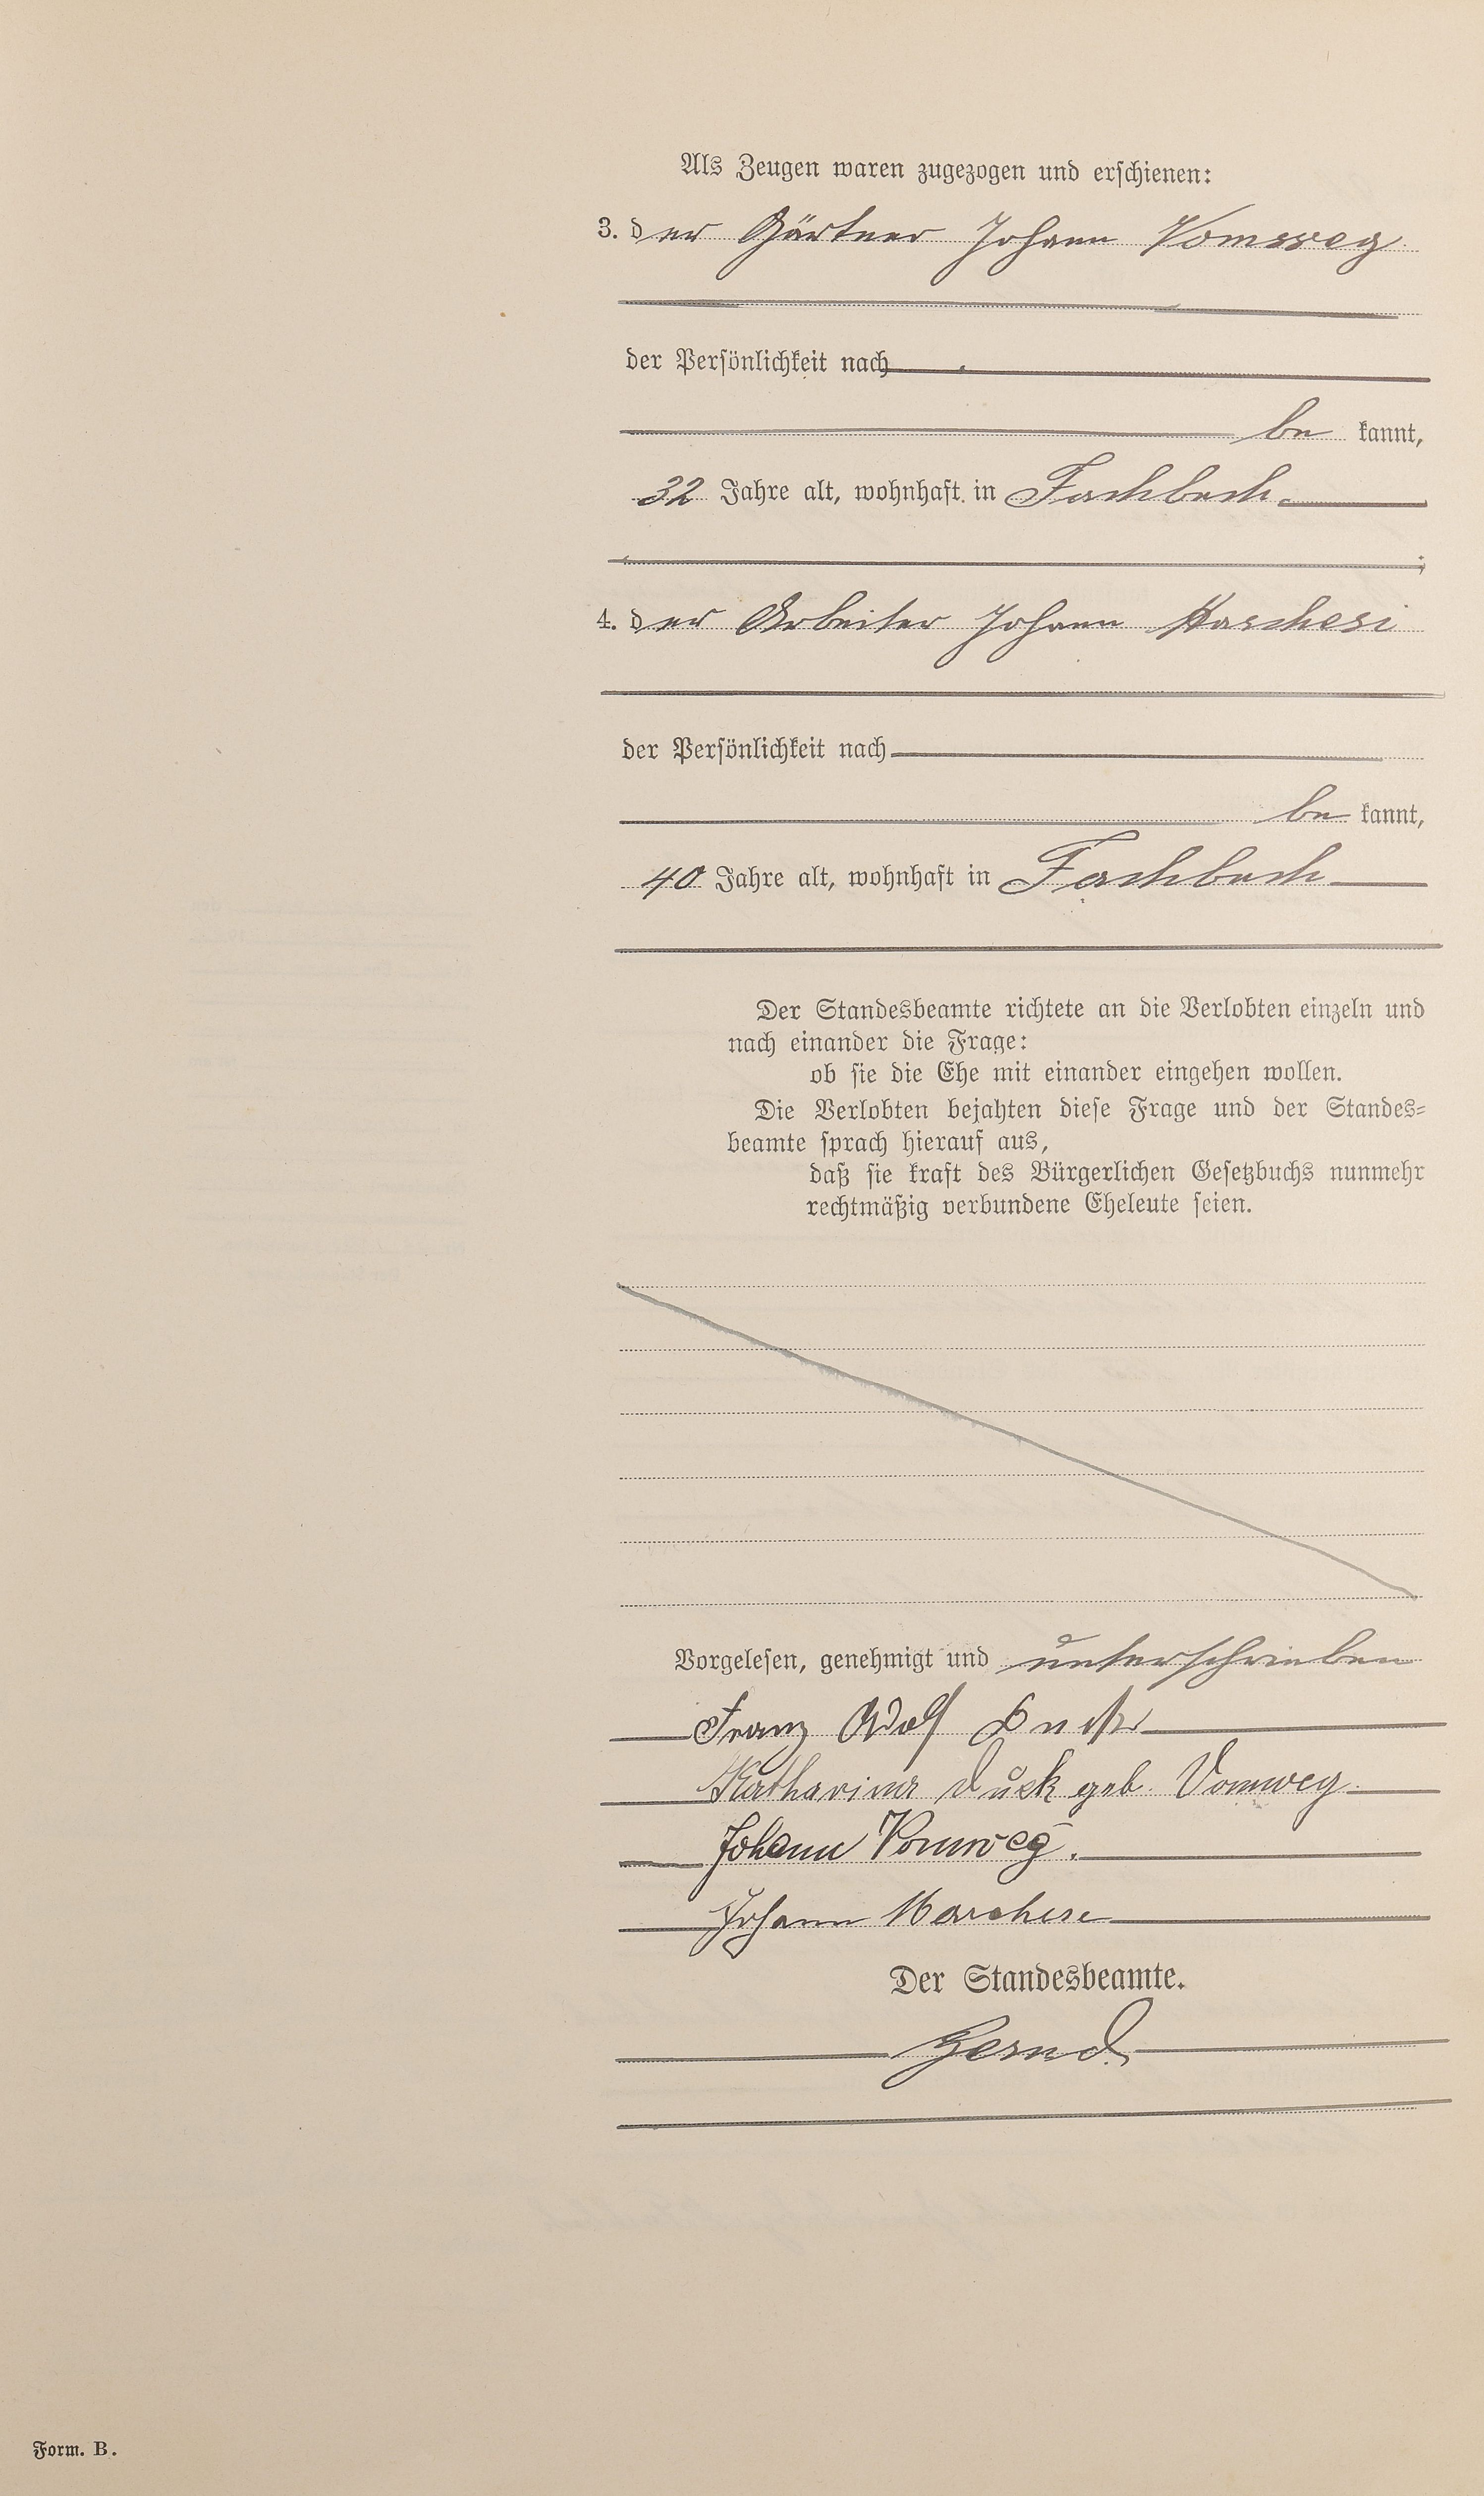 Als Zeugen waren zugezogen und erschienen:
3. der Gärtner Johann Vomweg
der Persönlichkeit nach
be kannt,
32 Jahre alt, wohnhaft in Fachbach.
;
4. der Arbeiter Johann
der Persönlichkeit nach
be kannt,
40 Jahre alt, wohnhaft in Fachbach
Der Standesbeamte richtete an die Verlobten einzeln und
nach einander die Frage:
ob sie die Ehe mit einander eingehen wollen.
Die Verlobten bejahten diese Frage und der Standes-
beamte sprach hierauf aus,
daß sie kraft des Bürgerlichen Gesetzbuchs nunmehr
rechtmäßig verbundene Eheleute seien.
Vorgelesen, genehmigt und unterschrieben
Franz Adolf
Katharina Duck geb. Vomweg.
Johann Vomweg.
Johann
Der Standesbeamte.
Form. B.